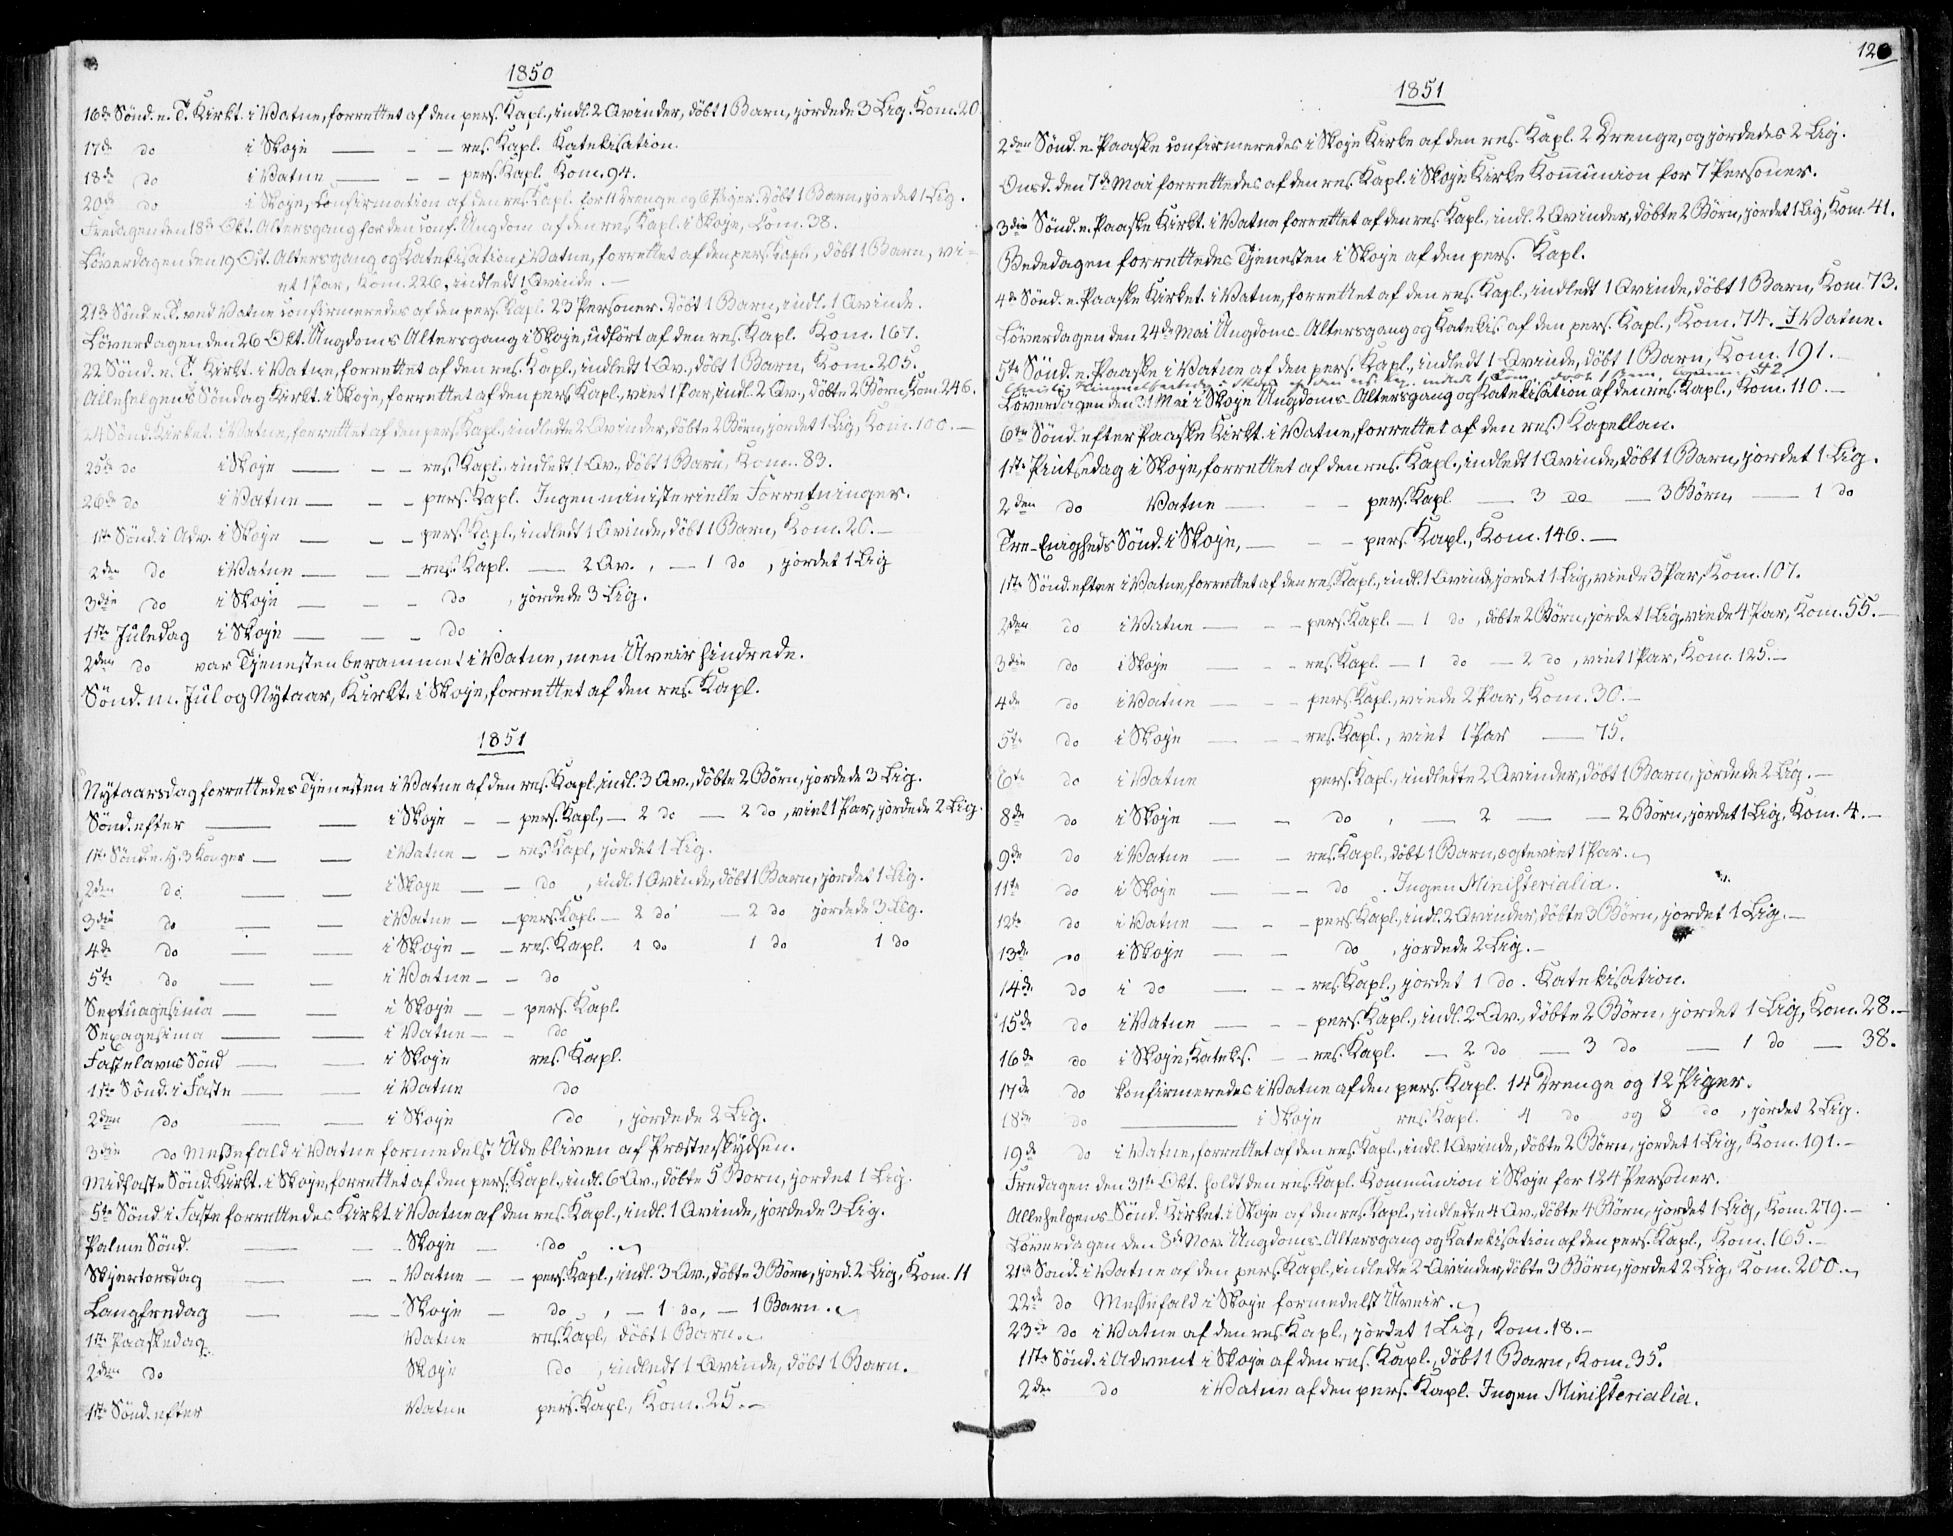 1850
16de Sønd. e. T. Kirkt. i Vatne, forrettet af den pers. Kapl., indl. 2 Qvinder, døbt 1 Barn, jordede 3 Lig. Kom. 20
17de do i Skoje — - - res. Kapl. Katekisation.
18de do i Vatne — - - pers. Kapl. Kom. 94.
20de do i Skoje, Confirmation af den res. Kapl. for 11 Drenge og 6 Piger. Døbt 1 Barn, jordet 1 Lig.
Fredagen den 18de Okt. Altersgang for den conf. Ungdom af den res. Kapl. i Skoje, Kom. 38.
Løverdagen den 19 Oct. Altersgang og Katekisation i Vatne, forrettet af den pers. Kapl., døbt 1 Barn, vi-
et 1 Par, Kom. 226, indledt 1 Qvinde. -
21de Sønd. e. T. ved Vatne confirmeredes af den pers. Kapl. 23 Personer. Døbt 1 Barn, indl. 1 Qvinde.
Løverdagen den 26 Okt. Ungdoms Altersgang i Skoje, udført af den res. Kapl. Kom. 167.
22 Sønd. e. T. Kirkt. i Vatne, forrettet af den res. Kapl., indledt 1 Qv., døbt 1 Barn, Kom. 205.
Allehelgens Søndag Kirkt. i Skoje, forrettet af den pers. Kapl., viet 1 Par, indl. 2 Qv., døbte 2 Børn, Kom. 246.
24 Sønd. Kirket. i Vatne, forrettet af den pers. Kapl., indledte 2 Qvinder, døbte 2 Børn, jordet 1 Lig, Kom. 100. —
25de do i Skoje — - - res. Kapl. indledt 1 Qv., døbt 1 Barn, Kom. 83.
26de do i Vatne — - - pers. Kapl. Ingen ministerielle Forretninger.
1ste Sønd. i Adv. i Skoje — - - pers. Kapl., indledt 1 Qvinde, døbt 1 Barn, Kom. 20. —
2den do i Vatne — - - res. Kapl. — 2 Qv., — 1 do, jordet 1 Lig
3die do i Skoje — — - do, jordede 3 Lig.
1ste Juledag i Skoje — — - do
2den do var Tjenesten berammet i Vatne, men Uveir hindrede.
Sønd. m. Jul og Nytaar, Kirkt. i Skoje, forrettet af den res. Kapl.
1851
Nytaarsdag forrettedes Tjenesten i Vatne af den res. Kapl., indl. 3 Qv., døbte 2 Børn, jordede 3 Lig.
Sønd. efter — — i Skoje - - pers. Kapl., — 2 do — 2 do, viet 1 Par, jordede 2 Lig.
1ste Sønd. e. H. 3 Konger — — i Vatne - - res. Kapl., jordet 1 Lig.
2den do. — — i Skoje - - do, indl. 1 Qvinde, døbt 1 Barn, jordet 1 Lig.
3die do — — i Vatne - - pers. Kapl. — 2 do — 2 do jordede 3 Lig.
4de do — — i Skoje - - res. Kapl. 1 do 1 do 1 do
5te do — — i Vatne - - do
Septuagesima — — i Skoje - - pers. Kapl.
Sexagesima — — i Vatne - - do
Fastelavns Sønd — — i Skoje res. Kapl.
1ste Sønd. i Faste — — i Vatne do
2den do — — i Skoje do, jordede 2 Lig.
3die do Messefald i Vatne formedelst Udebliven af Præsteskydsen.
Midfaste Sønd. Kirkt. i Skoje, forrettet af den pers. Kapl., indl. 6 Qv., døbte 5 Børn, jordet 1 Lig.
5te Sønd. i Faste forrettedes Kirkt. i Vatne af den res. Kapl., indl. 1 Qvinde, jordede 3 Lig.
Palme Sønd. — — Skoje — do.
Skjertorsdag — — Vatne — - pers. Kapl., indl. 3 Qv., døbte 3 Børn, jord. 2 Lig, Kom. 11
Langfredag — — Skoje — do, — 1 do, — 1 Barn.
1ste Paaskedag Vatne res. Kapl., døbt 1 Barn.
2den do Skoje do, indledt 1 Qvinde, døbt 1 Barn.
1ste Sønd. efter Vatne pers. Kapl., Kom. 25. —
1851
2den Sønd. e. Paaske confirmeredes i Skoje Kirke af den res. Kapl. 2 Drenge, og jordedes 2 Lig.
Onsd. den 7de Mai forrettedes af den res. Kapl. i Skoje Kirke Kommunion for 7 Personer.
3die Sønd. e. Paaske Kirkt. i Vatne forrettet af den res. Kapl., indl. 2 Qvinder, døbte 2 Børn, jordet 1 Lig, Kom. 41.
Bededagen forrettedes Tjenesten i Skoje af den pers. Kapl.
4de Sønd. e. Paaske Kirket. i Vatne, forrettet af den res. Kapl., indledt 1 Qvinde, døbt 1 Barn, Kom. 73.
Løverdagen den 24de Mai Ungdoms-Altersgang og Katekis. af den pers. Kapl., Kom. 74. I Vatne.
5te Sønd. e. Paaske i Vatne af den pers. Kapl., indledt 1 Qvinde, døbt 1 Barn, Kom. 191. —
Christi Himmelfartsdag i Skoje af den res. Kap. indledt 1 døbt 1 Barn
Løverdagen den 31 Mai i Skoje Ungdoms-Altersgang og Katekisation af den res. Kapl., Kom. 110. —
6te Sønd. efter Paaske Kirkt. i Vatne, forrettet af den res. Kapellan.
1ste Pintsedag i Skoje, forrettet af den res. Kapl., indledt 1 Qvinde, døbt 1 Barn, jordet 1 Lig.
2den do Vatne — - - pers. Kapl. — 3 do — 3 Børn, — 1 do
Tre-Enigheds Sønd. i Skoje, — - - pers. Kapl., Kom. 146. —
1ste Sønd. efter i Vatne, forrettet af den res. Kapl., indl. 1 Qvinde, jordet 1 Lig, viede 3 Par, Kom. 107.
2den do i Vatne — - - pers. Kapl. — 1 do, døbte 2 Børn, jordet 1 Lig, viede 4 Par, Kom. 55. —
3die do i Skoje — - - res. Kapl. — 1 do — 2 do, viet 1 Par, Kom. 125. —
4de do i Vatne — - - pers. Kapl., viede 2 Par, Kom. 30. —
5te do i Skoje — - - res. Kapl., viet 1 Par — 75.
6te do i Vatne pers. Kapl., indledte 2 Qvinder, døbt 1 Barn, jordede 2 Lig. —
8de do i Skoje — - do, — 2 — — 2 Børn, jordet 1 Lig, Kom. 4. —
9de do i Vatne — - res. Kapl., døbt 1 Barn, ægteviet 1 Par.
11te do i Skoje — - - do. Ingen Ministerialia.
12te do i Vatne — - - pers. Kapl., indl. 2 Qvinder, døbte 3 Børn, jordet 1 Lig. —
13de do i Skoje — - do, jordede 2 Lig. —
14de do i do — - - res. Kapl., jordet 1 do. Katekisation.
15de do i Vatne — - - pers. Kapl., indl. 2 Qv., døbte 2 Børn, jordet 1 Lig, Kom. 28. —
16de do i Skoje, Kateks. - - res. Kapl. — 2 do — 3 do — 1 do — 38.
17de do Confirmeredes i Vatne af den pers. Kapl. 14 Drenge og 12 Piger.
18de do — i Skoje res. Kapl. 4 do og 8 do, jordet 2 Lig.
19de do i Vatne, forrettet af den res. Kapl., indl. 1 Qvinde, døbte 2 Børn, jordet 1 Lig, Kom. 191. —
Fredagen den 31te Okt. holdt den res. Kapl. Kommunion i Skoje for 124 Personer.
Allehelgens Sønd. Kirket. i Skoje af den res. Kapl., indledte 4 Qv., døbte 4 Børn, jordet 1 Lig, Kom. 279. —
Løverdagen den 8de Nov. Ungdoms-Altersgang og Katekisation af den pers. Kapl., Kom. 165. —
21de Sønd. i Vatne af den pers. Kapl., indledte 2 Qvinder, døbte 3 Børn, jordet 2 Lig, Kom. 200.
22de do Messefald i Skoje formedelst Uveir.
23de do i Vatne af den res. Kapl., jordet 1 Lig, Kom. 18. —
1ste Sønd. i Advent i Skoje af den res. Kapl., døbt 1 Barn, Kom. 35.
2den do i Vatne af den pers. Kapl. Ingen Ministerialia.